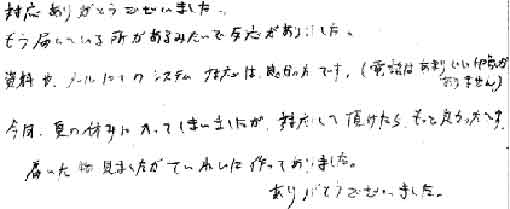 対応ありがとうございました。
もう届いている所があるみたいで反応がありました。
資料や、メールにての システム 対応は 良い方です。(電話はあまりいい印象が
ありません)
今回、夏の休みに入ってしまいましたが、対応して頂けたら もっと良かったです。
届いた物 見ましたが ていねいに作ってありました。
ありがとうございました。